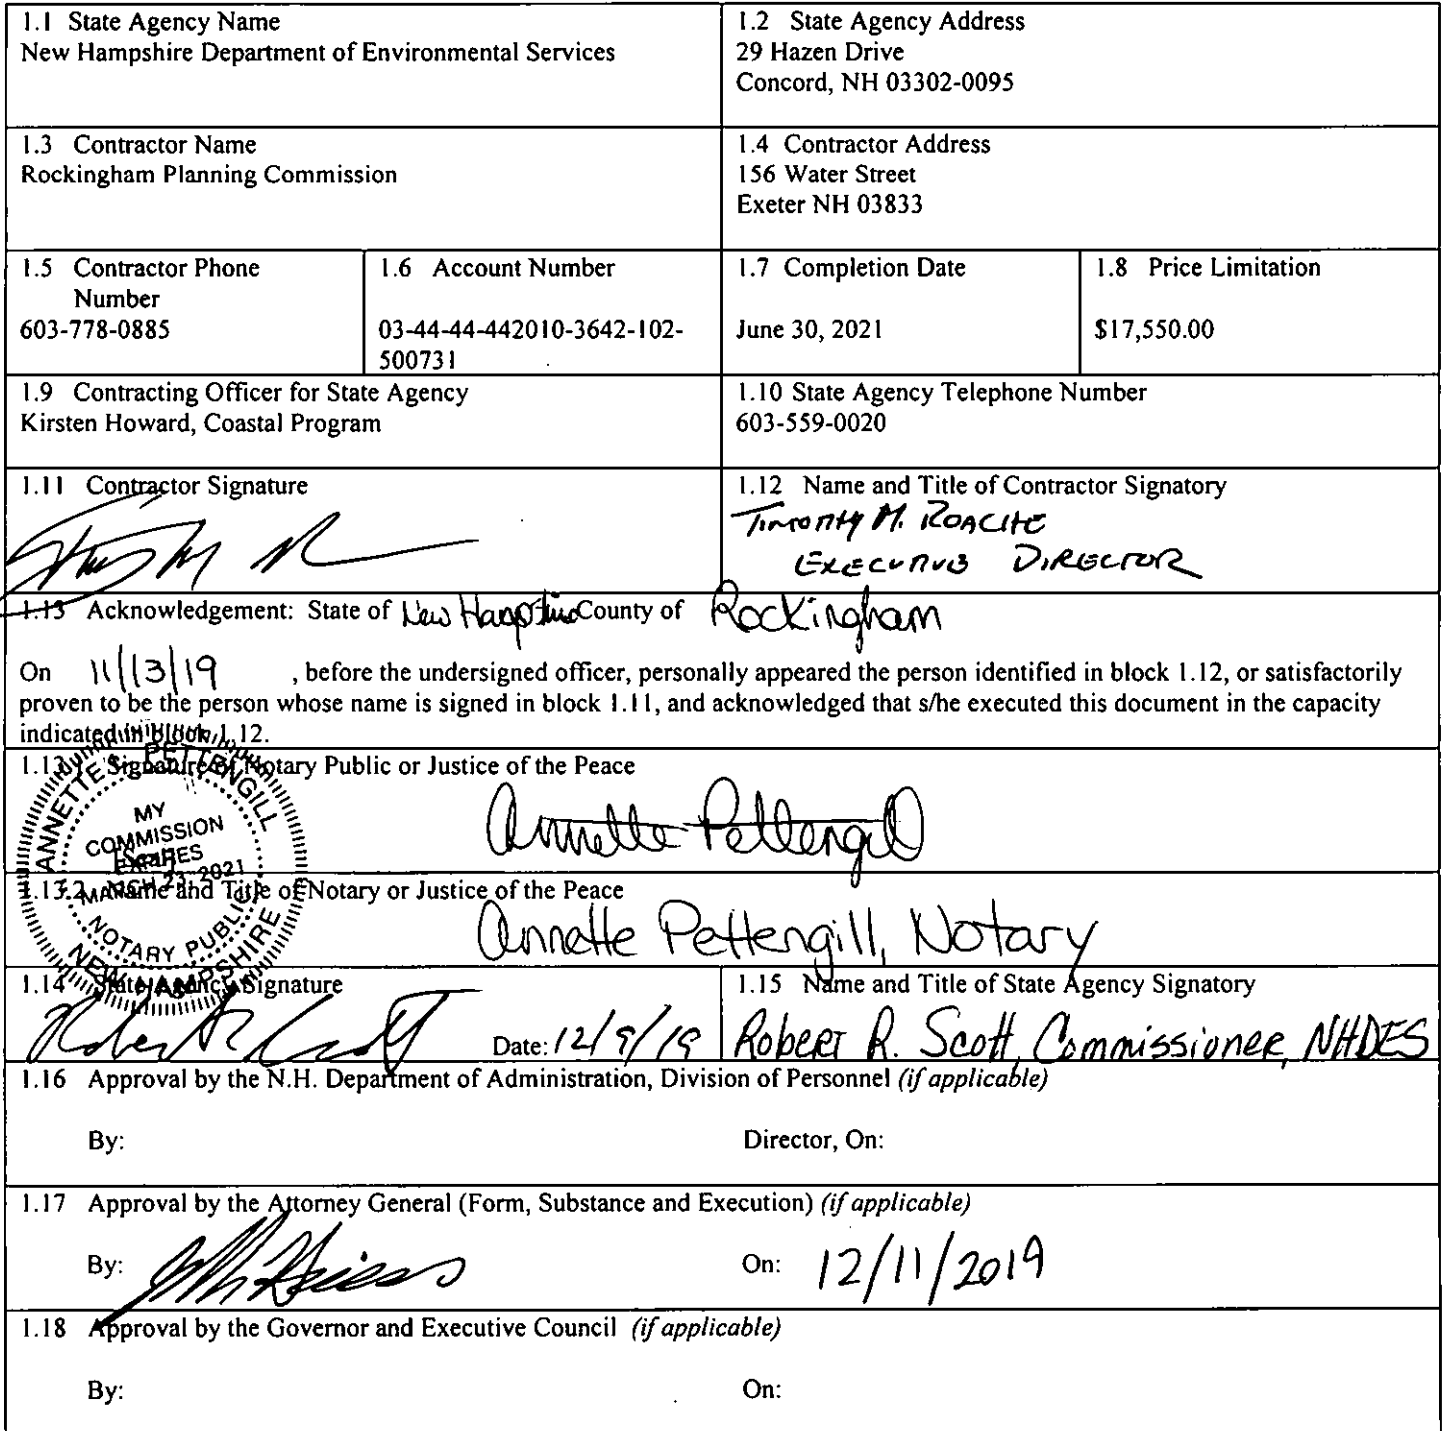 1.1 State Agency Name
New Hampshire Department of Environmental Services
1.2 State Agency Address
29 Hazen Drive
Concord, NH 03302-0095
1.3 Contractor Name
Rockingham Planning Commission
1.4 Contractor Address
156 Water Street
Exeter NH 03833
1.5 Contractor Phone
Number
603-778-0885
1.6 Account Number
03-44-44-442010-3642-102-
500731
1.7 Completion Date
June 30, 2021
1.8 Price Limitation
$17,550.00
1.9 Contracting Officer for State Agency
Kirsten Howard, Coastal Program
1.10 State Agency Telephone Number
603-559-0020
1.11 Contractor Signature
1.12 Name and Title of Contractor Signatory
Timothy M. Roache
Executive Director
1.13 Acknowledgement: State of New Hampshire County of Rockingham
On 11/13/19 , before the undersigned officer, personally appeared the person identified in block 1.12, or satisfactorily
proven to be the person whose name is signed in block 1.11, and acknowledged that s/he executed this document in the capacity
indicated in block 1.12.
1.13.1 Signature of Notary Public or Justice of the Peace
Annette Pettengill
ANNETTE S. PETTENGILL
MY
COMMISSION
EXPIRES
MARCH 23, 2021
NOTARY PUBLIC
NEW HAMPSHIRE
[Seal]
1.13.2 Name and Title of Notary or Justice of the Peace
Annette Pettengill, Notary
1.14 State Agency Signature
Date: 12/9/19
1.15 Name and Title of State Agency Signatory
Robert R. Scott, Commissioner, NHDES
1.16 Approval by the N.H. Department of Administration, Division of Personnel (if applicable)
By:
Director, On:
1.17 Approval by the Attorney General (Form, Substance and Execution) (if applicable)
By:
On: 12/11/2019
1.18 Approval by the Governor and Executive Council (if applicable)
By:
On: